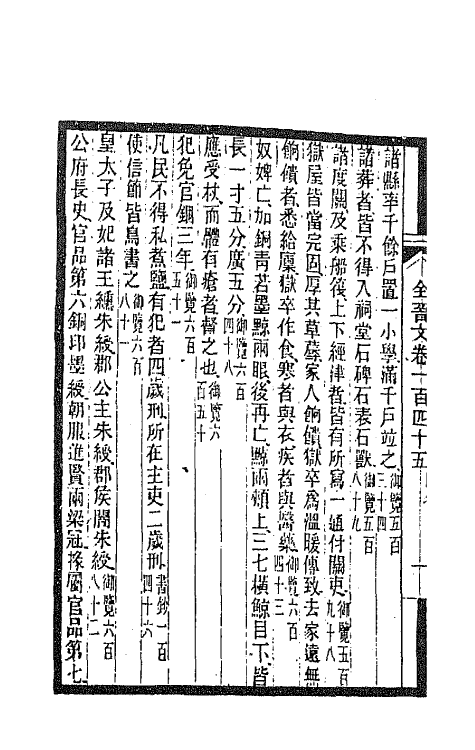 全晉文卷一百四十五
諸縣率千餘戶置一小學滿千戶竝之御覽五百三十四
諸葬者皆不得入祠堂石碑石表石獸御覽五百八十九
諸度關及乘船筏上下經津者皆有所寫一通付關吏御覽五百九十八
獄屋皆當完固厚其草蓐家人餉饋獄卒爲溫暖傳致去家遠無
餉饋者悉給廩獄卒作食寒者與衣疾者與醫藥御覽六百四十三
奴婢亡加銅靑若墨黥兩眼後再亡黥兩頰上三亡橫黥目下皆
長一寸五分廣五分御覽六百四十八
應受杖而體有瘡者督之也御覽六百五十
犯免官錮三年御覽六百五十一
凡民不得私煮鹽有犯者四歲刑所在主吏二歲刑書鈔一百四十六
使信節皆鳥書之御覽六百八十一
皇太子及妃諸王纁朱綬郡公主朱綬郡侯闇朱綬御覽六百八十二
公府長史官品第六銅印墨綬朝服進賢兩梁冠掾屬官品第七